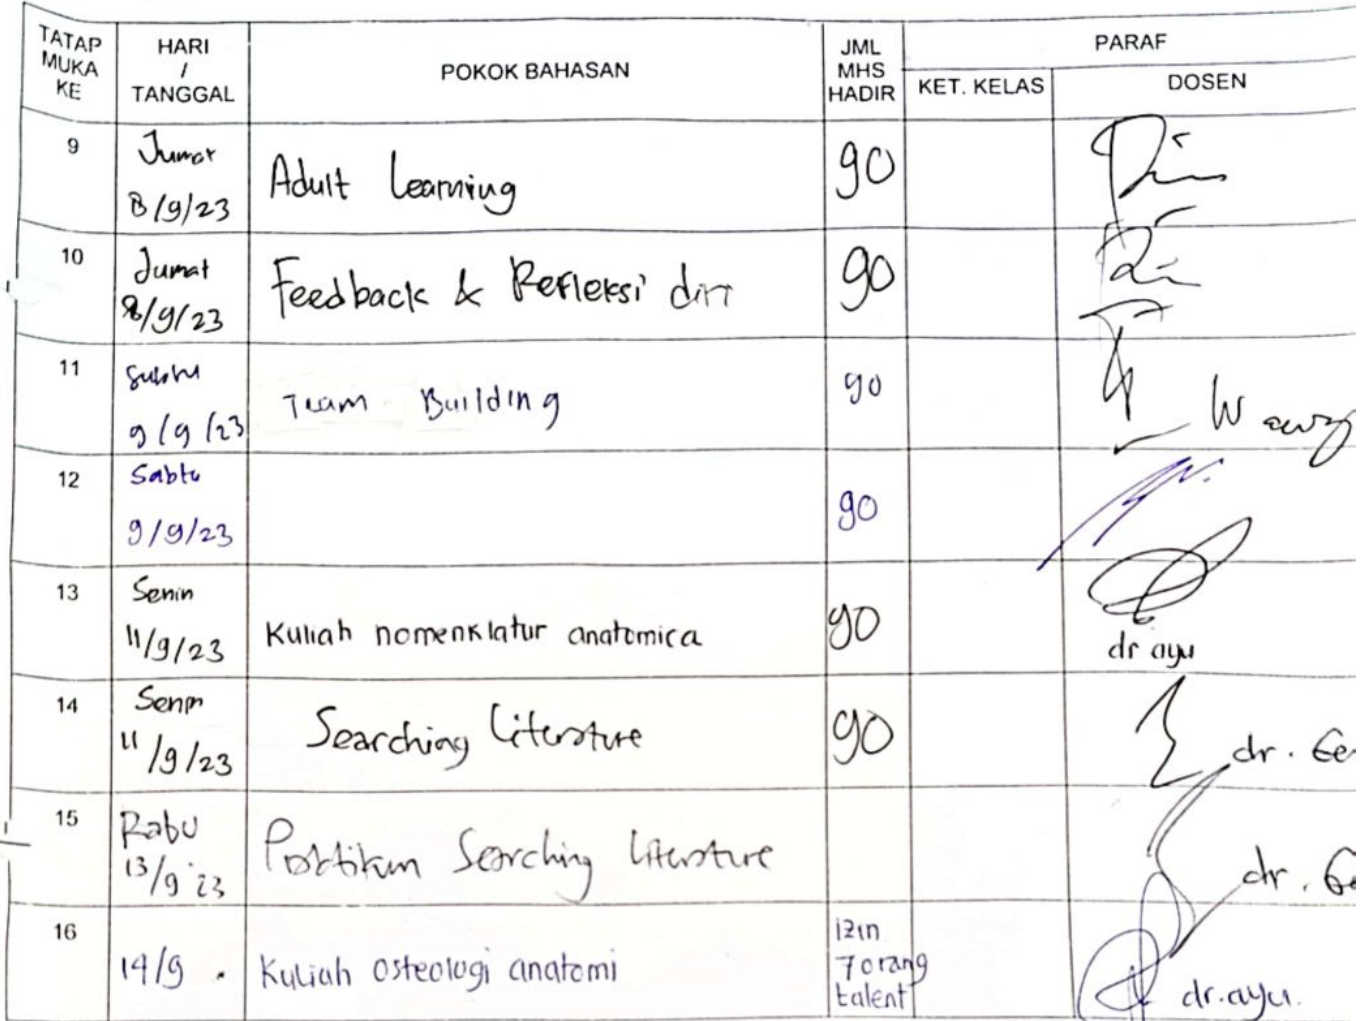 TATAP MUKA KE
HARI / TANGGAL
POKOK BAHASAN
JML MHS HADIR
PARAF
KET. KELAS
DOSEN
9
Jumat
8/9/23
Adult Learning
90
10
Jumat
8/9/23
Feedback & Refleksi diri
90
11
9/9/23
Team Building
90
12
Sabtu
9/9/23
90
13
Senin
11/9/23
Kuliah nomenklatur anatomica
90
dr ayu
14
Senin
11/9/23
Searching Literature
90
dr. Ge
15
Rabu
13/9 23
Praktikum Searching Literature
dr. Ge
16
14/9
Kuliah osteologi anatomi
izin
7 orang
talent
dr. ayu.